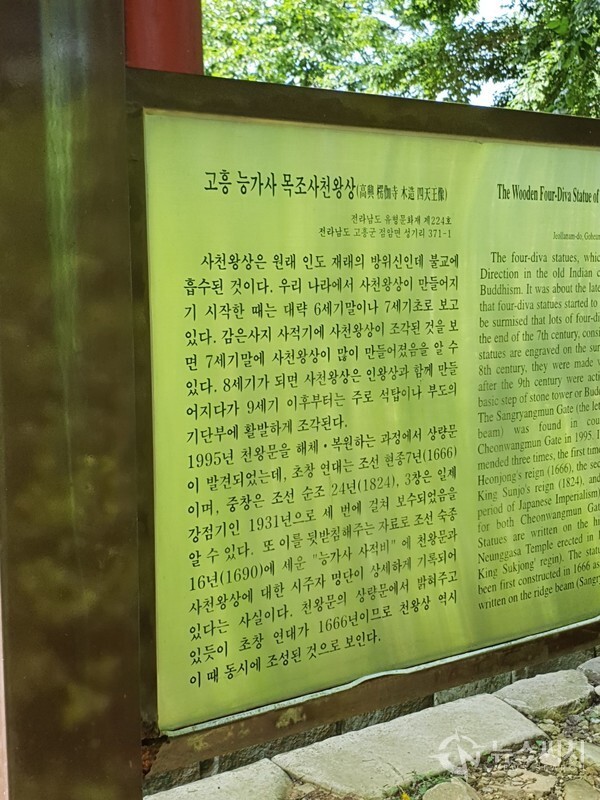 고흥 능가사 목조사천왕상(高興 楞伽寺 木造 四天王像)
전라남도 유형문화재 제224호
전라남도 고흥군 점암면 성기리 371-1
사천왕상은 원래 인도 재래의 방위신인데 불교에
흡수된 것이다. 우리 나라에서 사천왕상이 만들어지
기 시작한 때는 대략 6세기말이나 7세기초로 보고
있다. 감은사지 사적기에 사천왕상이 조각된 것을 보
면 7세기말에 사천왕상이 많이 만들어졌음을 알 수
있다. 8세기가 되면 사천왕상은 인왕상과 함께 만들
어지다가 9세기 이후부터는 주로 석탑이나 부도의
기단부에 활발하게 조각된다.
1995년 천왕문을 해체·복원하는 과정에서 상량문
이 발견되었는데, 초창 연대는 조선 현종7년(1666)
이며, 중창은 조선 순조 24년(1824), 3창은 일제
강점기인 1931년으로 세 번에 걸쳐 보수되었음을
알 수 있다. 또 이를 뒷받침해주는 자료로 조선 숙종
16년(1690)에 세운 "능가사 사적비" 에 천왕문과
사천왕상에 대한 시주자 명단이 상세하게 기록되어
있다는 사실이다. 천왕문의 상량문에서 밝혀주고
있듯이 초창 연대가 1666년이므로 천왕상 역시
이 때 동시에 조성된 것으로 보인다.
The Wooden Four-Diva Statue of
Jeollanam-do, Goheun
The four-diva statues, whic
Direction in the old Indian c
Buddhism. It was about the late
that four-diva statues started to
be surmised that lots of four-di
the end of the 7th century, consi
statues are engraved on the sur
8th century, they were made w
after the 9th century were acti
basic step of stone tower or Budd
The Sangryangmun Gate (the let
beam) was found in cou
Cheonwangmun Gate in 1995. I
mended three times, the first tim
Heonjong's reign (1666), the sec
King Sunjo's reign (1824), and
period of Japanese Imperialism)
for both Cheonwangmun Gat
Statues are written on the hi
Neunggasa Temple erected in
King Sukjong' regin). The statu
been first constructed in 1666 as
written on the ridge beam (Sangry
뉴스깨기